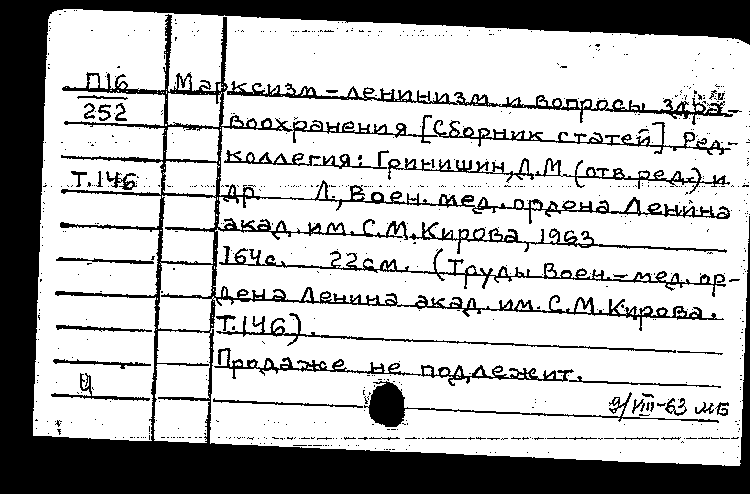 П16 Марксизм-ленинизм и вопросы здра-
252 воохранения [Сборник статей]. Ред-
коллегия: Гринишин, Д.М. (отв. ред.) и
Т.146 др. Л., Воен. мед. ордена Ленина
акад. им. С.М. Кирова, 1963
164с. 22см. (Труды Воен.-мед. ор-
дена Ленина акад. им. С.М. Кирова.
Т.146).
Продаже не подлежит.
9/VIII-63 МБ